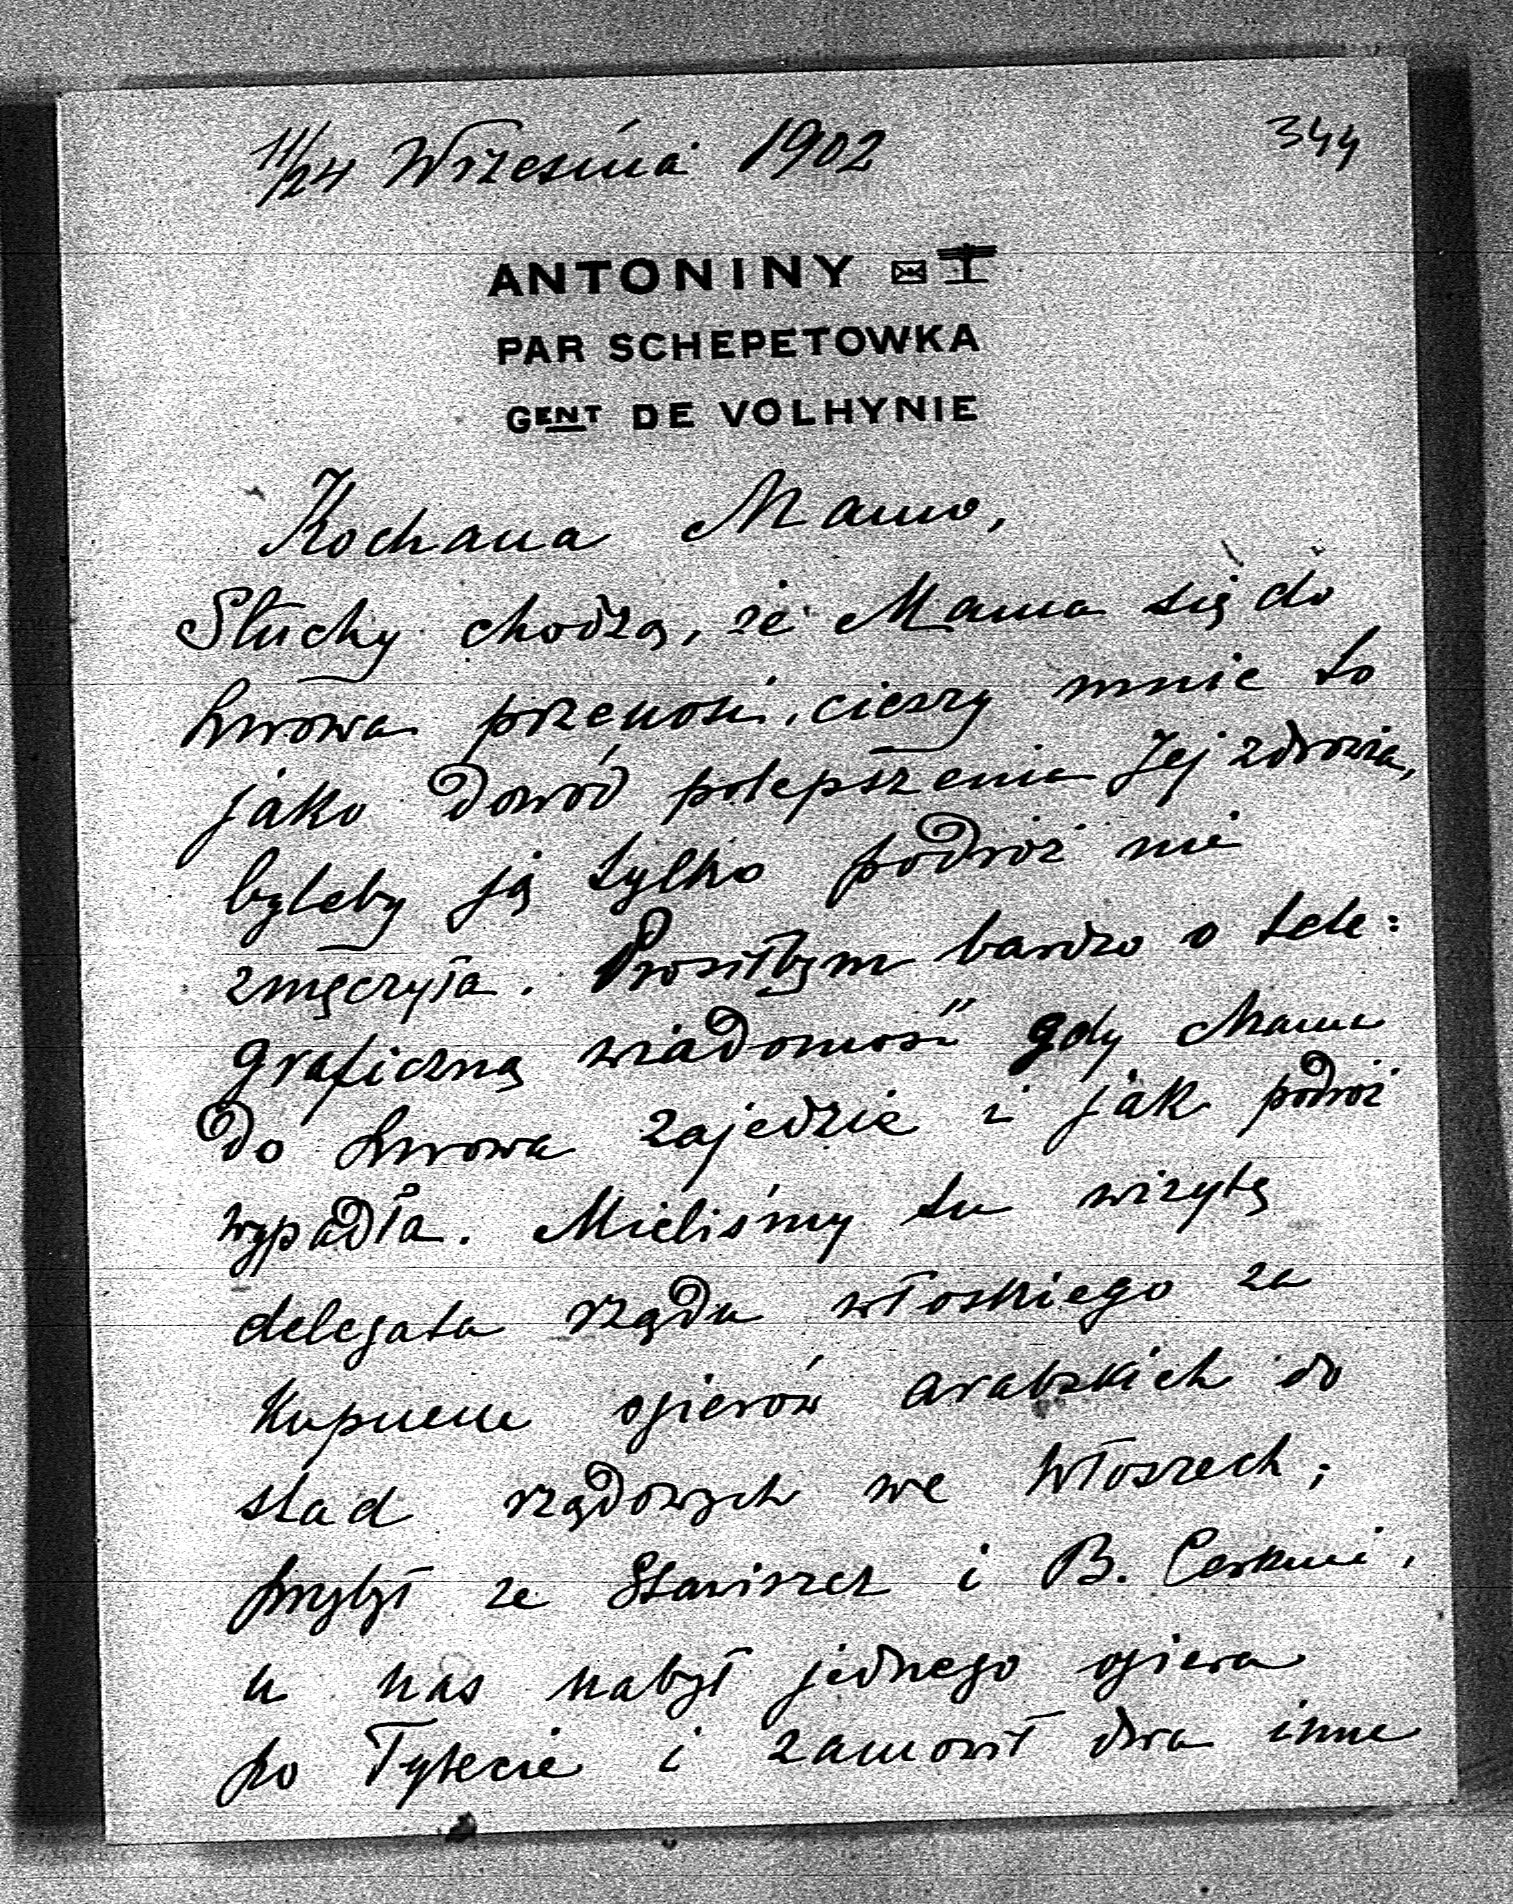 11/24 Września 1902
344
ANTONINY
PAR SCHEPETOWKA
GENT DE VOLHYNIE
Kochana Mamo,
Słuchy chodzą, że Mama się do
Lwowa przenosi, cieszy mnie to
jako dowód polepszenia Jej zdrowia,
byleby ją tylko podróż nie
zmęczyła. Prosiłbym bardzo o tele:
graficzną wiadomość gdy Mama
do Lwowa zajedzie i jak podróż
wypadła. Mieliśmy tu wizytę
delegata rządu włoskiego za
kupnem ogierów arabskich do
stad rządowych we Włoszech;
przybył ze Stawiszcz i B. Cerkwi,
u nas nabył jednego ogiera
po i zamówił dwa inne